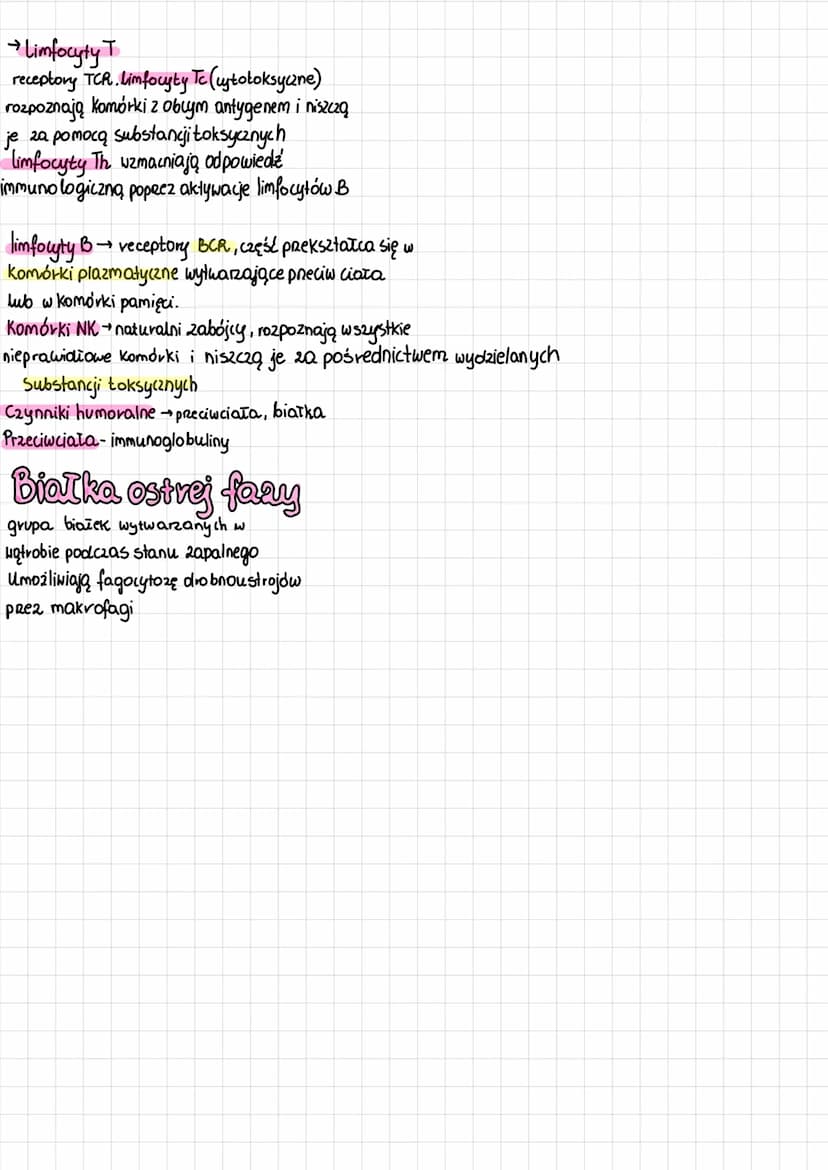 → Limfocyty T
receptory TCR. Limfocyty Tc (cytotoksyczne)
rozpoznają komórki z obcym antygenem i niszczą
je za pomocą substancji toksycznych
limfocyty Th wzmacniają odpowiedź
immunologiczną poprzez aktywacje limfocytów B
limfocyty B → receptory BCR, część przekształca się w
komórki plazmatyczne wytwarzające przeciw ciała
lub w komórki pamięci.
Komórki NK → naturalni zabójcy, rozpoznają wszystkie
nieprawidłowe komórki i niszczą je za pośrednictwem wydzielanych
substancji toksycznych
Czynniki humoralne → przeciwciała, białka
Przeciwciała - immunoglobuliny
Białka ostrej fazy
grupa białek wytwarzanych w
wątrobie podczas stanu zapalnego
Umożliwiają fagocytozę drobnoustrojów
przez makrofagi